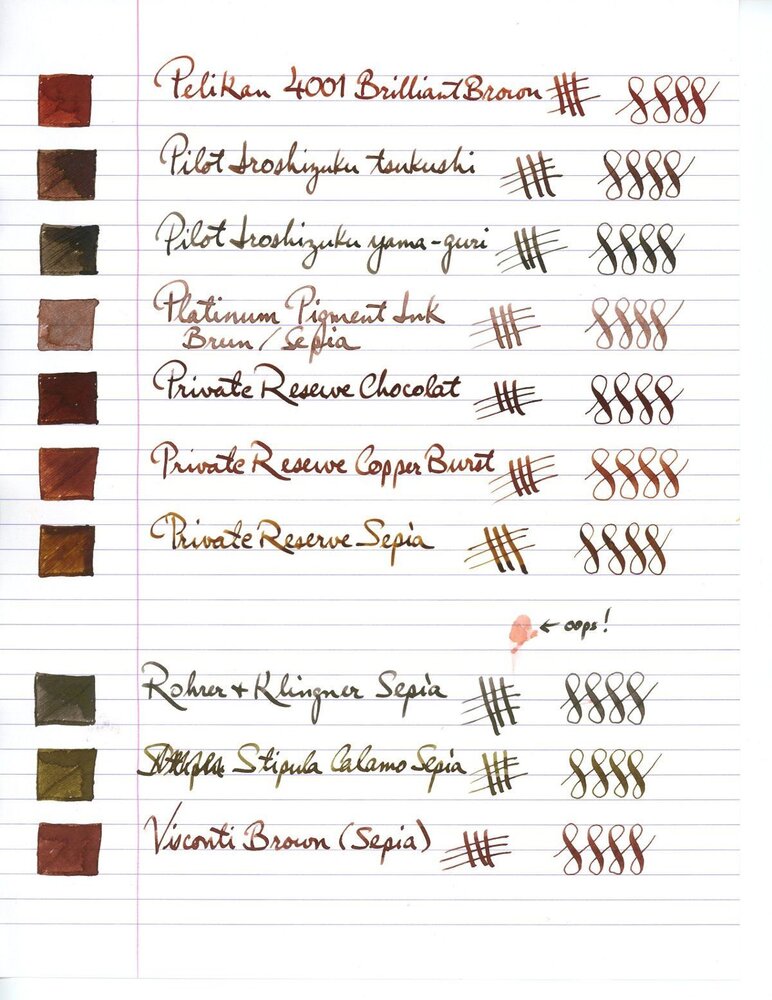 Pelikan 4001 Brilliant Brown
Pilot Iroshizuku tsukushi
Pilot Iroshizuku yama-guri
Platinum Pigment Ink
Brun / Sepia
Private Reserve Chocolat
Private Reserve Copper Burst
Private Reserve Sepia
← oops!
Rohrer + Klingner Sepia
Stipula Calamo Sepia
Visconti Brown (Sepia)